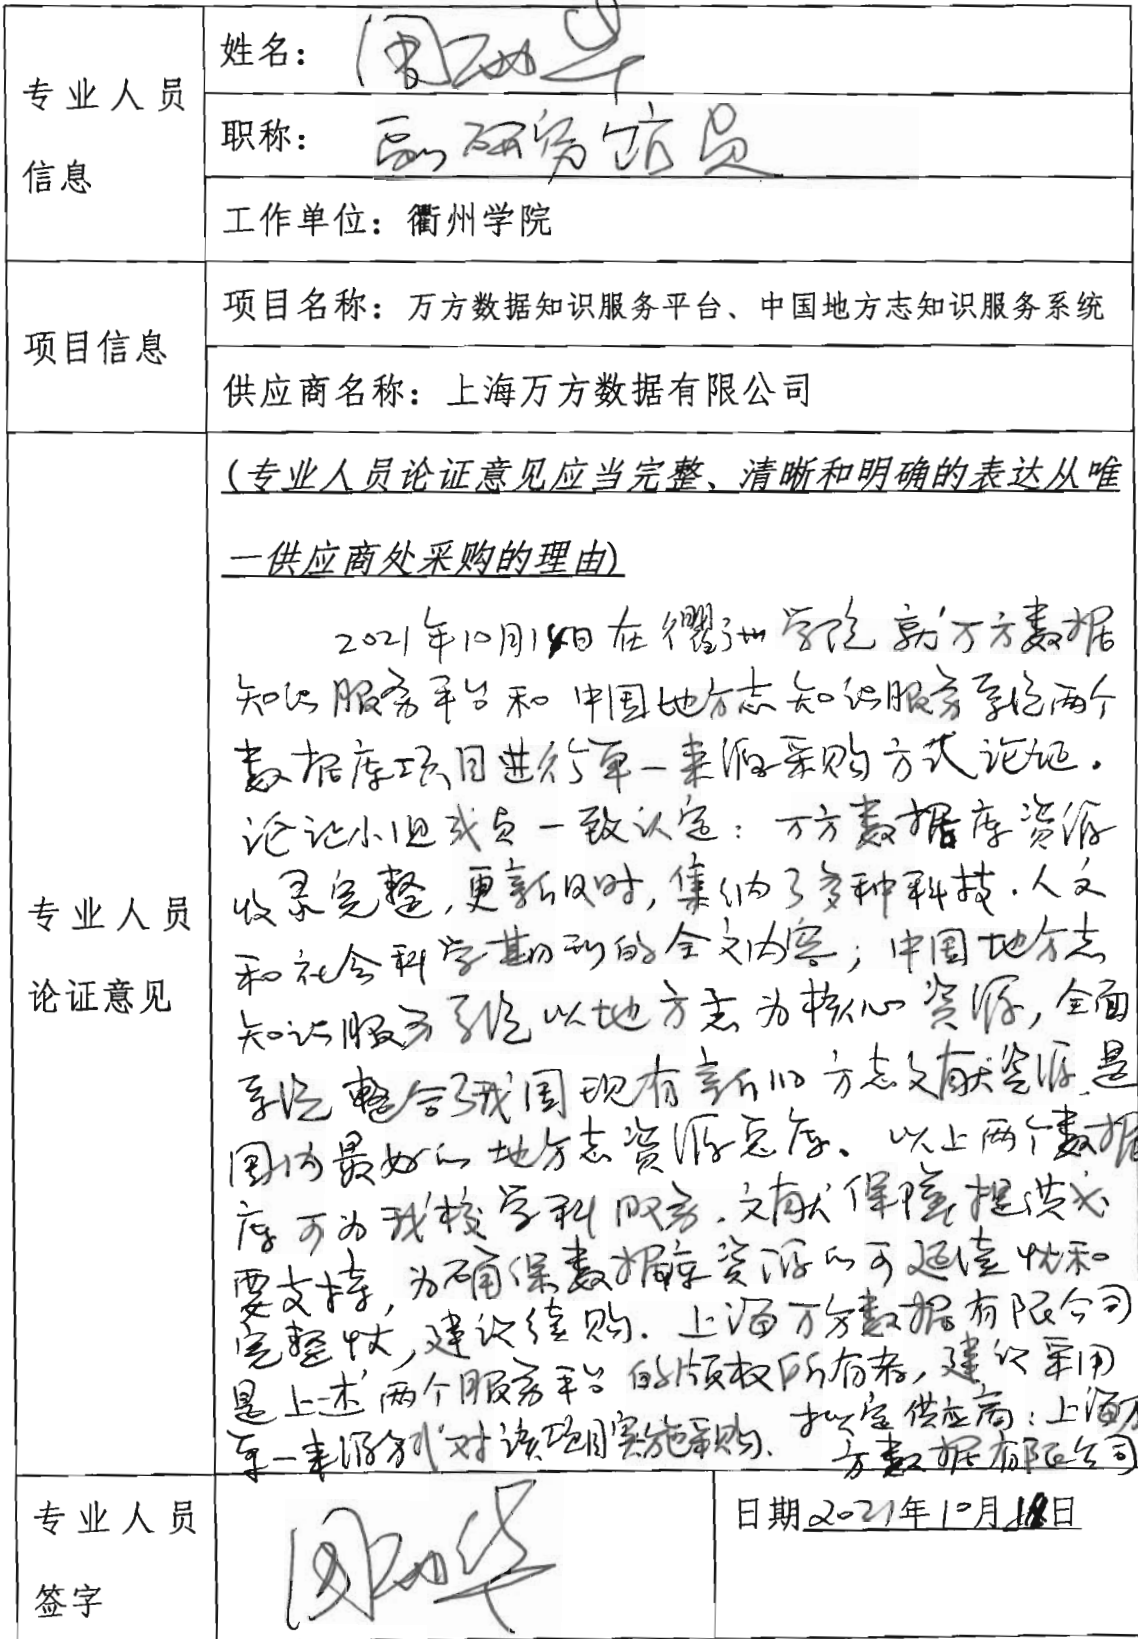 专业人员
信息
姓名：
职称：副研究馆员
工作单位：衢州学院
项目信息
项目名称：万方数据知识服务平台、中国地方志知识服务系统
供应商名称：上海万方数据有限公司
专业人员
论证意见
(专业人员论证意见应当完整、清晰和明确的表达从唯
一供应商处采购的理由)
2021年10月1日在衢州学院就万方数据
知识服务平台和中国地方志知识服务系统两个
数据库项目进行单一来源采购方式论证。
论证小组成员一致认定：万方数据库资源
收录完整,更新及时,集纳了多种科技、人文
和社会科学期刊的全文内容；中国地方志
知识服务系统以地方志为核心资源,全面
系统整合了我国现有新旧方志文献资源,是
国内最好的地方志资源总库。以上两个数据
库可为我校学科服务、文献保障提供必
要支持,为确保数据库资源的可延续性和
完整性,建议续购.上海万方数据有限公司
是上述两个服务平台的版权所有者,建议采用
单一来源方式对该项目实施采购.拟定供应商：上海万
方数据有限公司
专业人员
签字
日期2021年10月18日